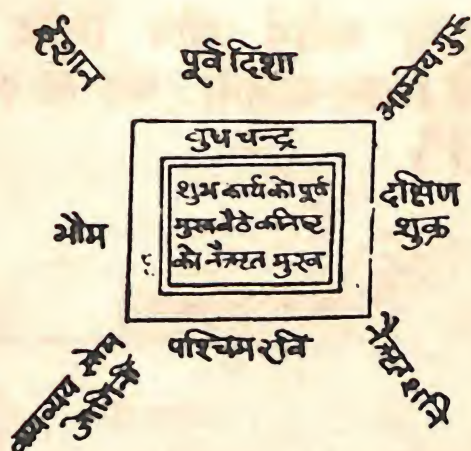 ईशान
पूर्व दिशा
आग्नेय गुरू
बुध चन्द्र
शुभ कार्य को पूर्व
मुख बैठे कनिष्ट
को नैऋत मुख
भौम
दक्षिण
शुक्र
पश्चिम रवि
वायव्यय सोम
जोगिनी
नैऋत शनि